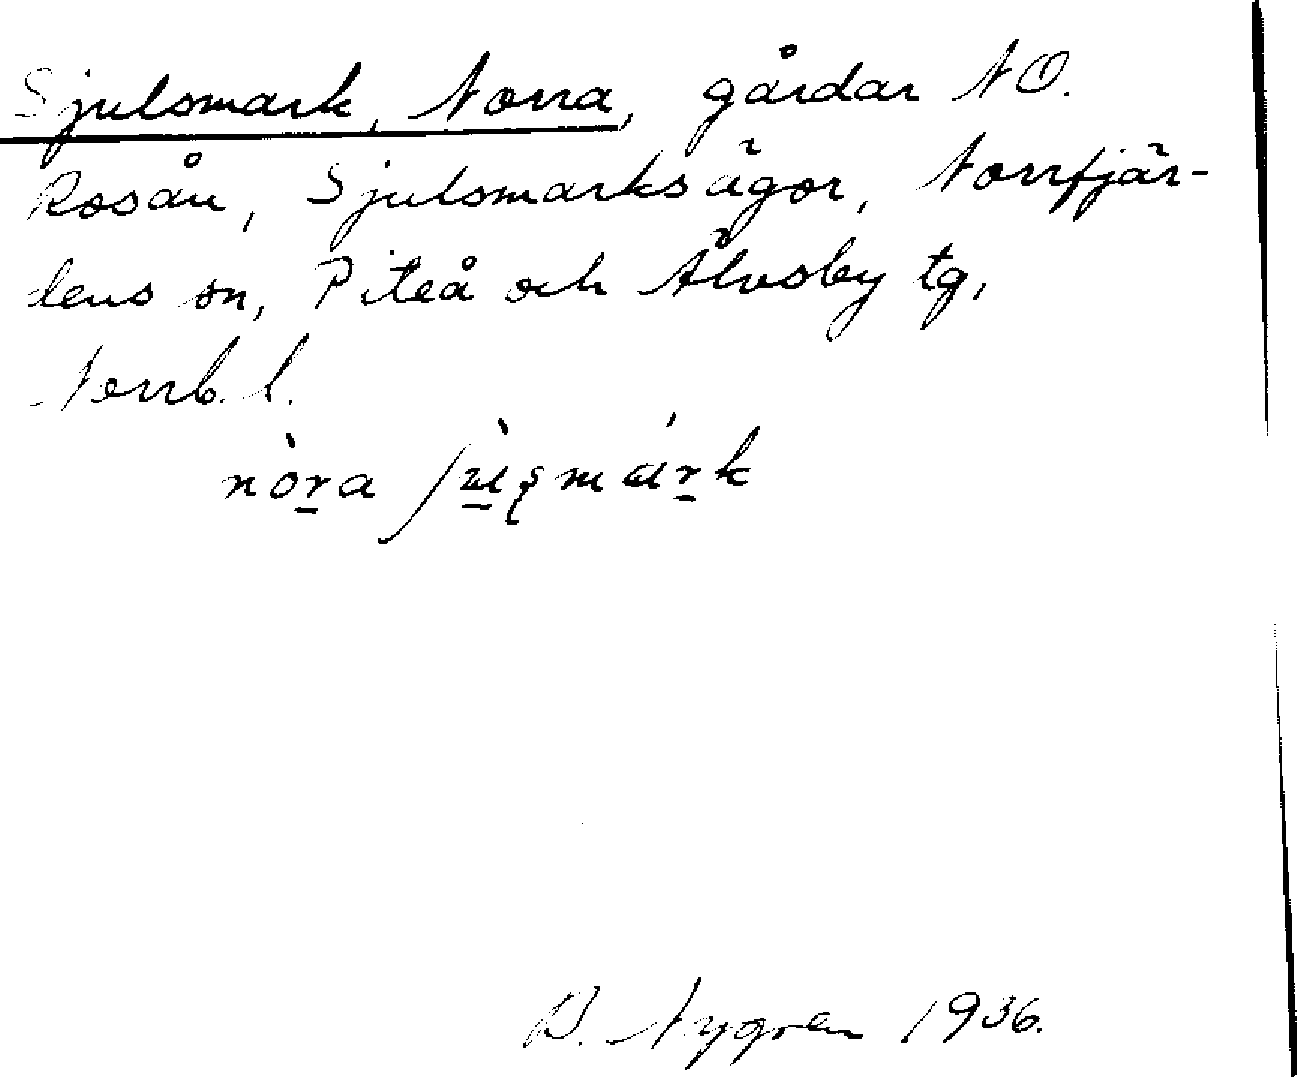 Sjulsmark, Norra, gårdar NO.
Rosån, Sjulsmarksägor, Norrfjär-
dens sn, Piteå och Älvsby tg,
Norrb. l.
nòra
Nygren 1936.